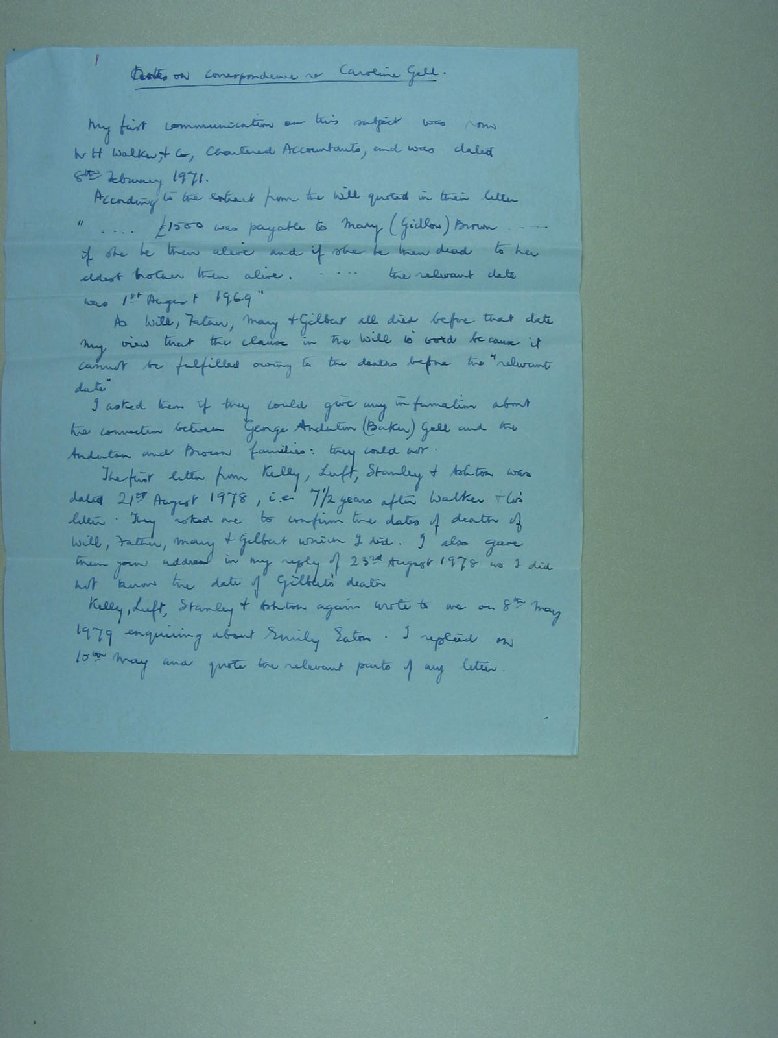 1
Notes on correspondence re Caroline Gell.
My first communication on this subject was from
W H Walker & Co, Chartered Accountants, and was dated
8th February 1971.
According to the extract from the will quoted in their letter
" .... £1500 was payable to Mary (Gidlow) Brown ----
if she be then alive and if she be then dead to her
eldest brother then alive. .... the relevant date
was 1st August 1969"
As Will, Father, Mary & Gilbert all died before that date
my view that the clause in the Will is void because it
cannot be fulfilled owing to the deaths before the "relevant
date"
I asked them if they could give any information about
the connection between George Anderton (Barker) Gell and the
Anderton and Brown families: they could not.
The first letter from Kelly, Luft, Stanley & Ashton was
dated 21st August 1978, i.e. 7½ years after Walker & Co's
letter. They asked me to confirm the dates of deaths of
Will, Father, Mary & Gilbert which I did. I also gave
them your address in my reply of 23rd August 1978 as I did
not know the date of Gilbert's death
Kelly, Luft, Stanley & Ashton again wrote to me on 8th May
1979 enquiring about Emily Eaton. I replied on
10th May and quote the relevant parts of my letter.